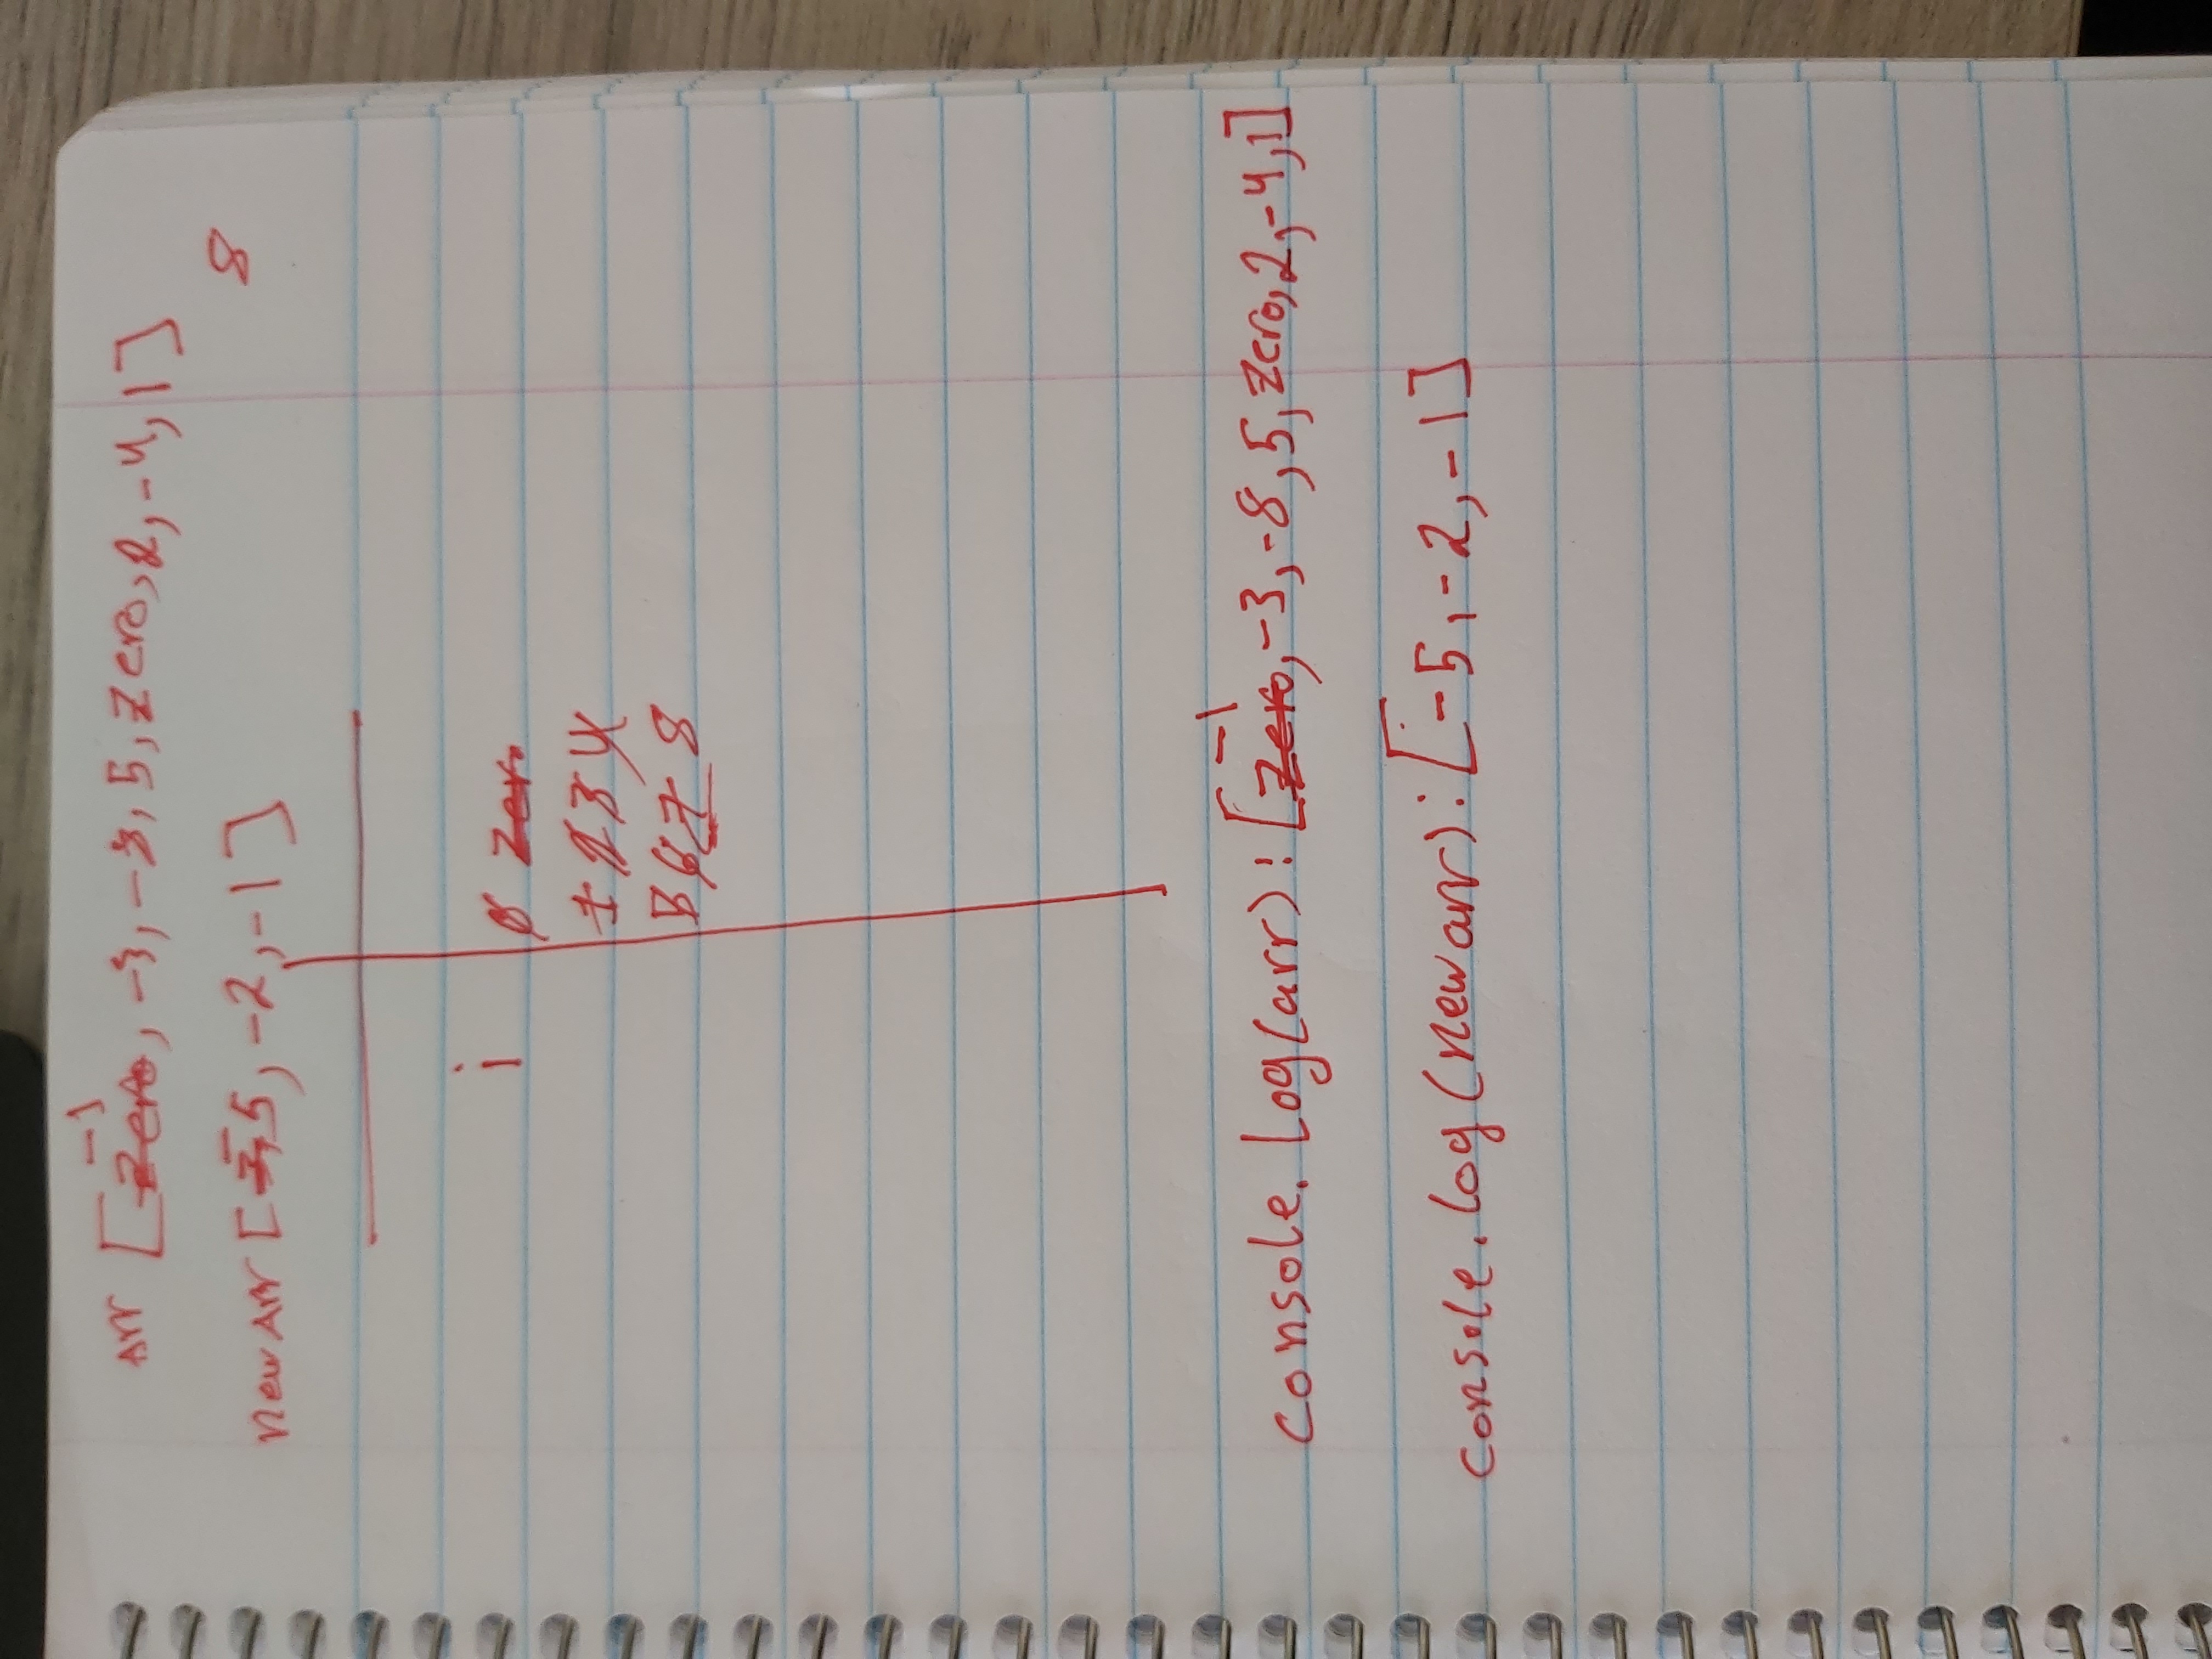 -1
Arr [Zero, -3, -8, 5, Zero, 2, -4, 1]
8
New Arr [-5, -2, -1]
i
0 Zero
1 2 3 4
5 6 7 8
-1
console.log(arr): [Zero, -3, -8, 5, Zero, 2, -4, 1]
console.log(newarr): [-5, -2, -1]